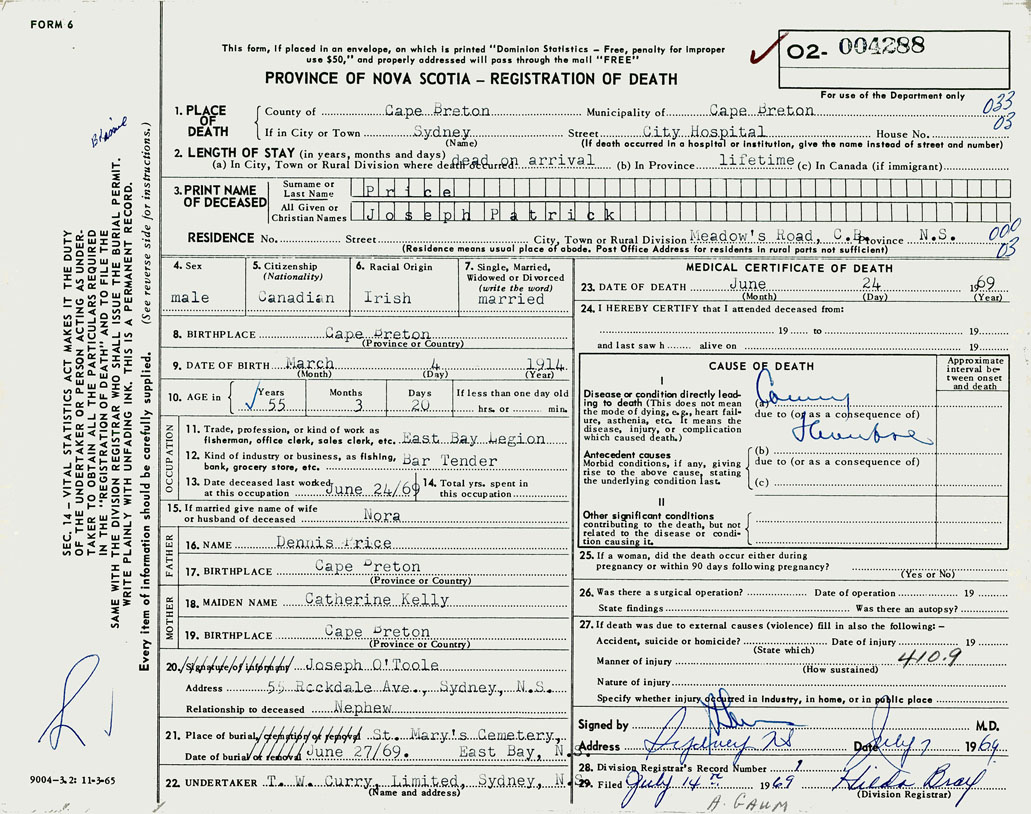 FORM 6
This form, if placed in an envelope, on which is printed "Dominion Statistics – Free, penalty for improper
use $50," and properly addressed will pass through the mail "FREE"
PROVINCE OF NOVA SCOTIA – REGISTRATION OF DEATH
02- 004288
For use of the Department only
033
03
1. PLACE OF DEATH
County of Cape Breton Municipality of Cape Breton
If in City or Town Sydney Street City Hospital House No.
(Name) (If death occurred in a hospital or institution, give the name instead of street and number)
2. LENGTH OF STAY (in years, months and days)
(a) In City, Town or Rural Division where death occurred dead on arrival (b) In Province lifetime (c) In Canada (if immigrant)
3. PRINT NAME OF DECEASED
Surname or Last Name Price
All Given or Christian Names Joseph Patrick
RESIDENCE No. Street City, Town or Rural Division Meadow's Road, C.B. Province N.S.
(Residence means usual place of abode. Post Office Address for residents in rural parts not sufficient)
000
03
4. Sex
male
5. Citizenship
(Nationality)
Canadian
6. Racial Origin
Irish
7. Single, Married,
Widowed or Divorced
(write the word)
married
8. BIRTHPLACE Cape Breton
(Province or Country)
9. DATE OF BIRTH March 4 1914
(Month) (Day) (Year)
10. AGE in
Years Months Days If less than one day old
55 3 20 hrs. or min.
OCCUPATION
11. Trade, profession, or kind of work as
fisherman, office clerk, sales clerk, etc. East Bay Legion
12. Kind of industry or business, as fishing,
bank, grocery store, etc. Bar Tender
13. Date deceased last worked
at this occupation June 24/69
14. Total yrs. spent in
this occupation
15. If married give name of wife
or husband of deceased Nora
FATHER
16. NAME Dennis Price
17. BIRTHPLACE Cape Breton
(Province or Country)
MOTHER
18. MAIDEN NAME Catherine Kelly
19. BIRTHPLACE Cape Breton
(Province or Country)
20. Signature of informant Joseph O'Toole
Address 55 Rockdale Ave., Sydney, N.S.
Relationship to deceased Nephew
21. Place of burial, cremation or removal St. Mary's Cemetery,
Date of burial or removal June 27/69. East Bay, N.S.
22. UNDERTAKER T. W. Curry, Limited, Sydney, N.S.
(Name and address)
MEDICAL CERTIFICATE OF DEATH
23. DATE OF DEATH June 24 1969
(Month) (Day) (Year)
24. I HEREBY CERTIFY that I attended deceased from:
19 to 19
and last saw h alive on 19
CAUSE OF DEATH
Approximate
interval be-
tween onset
and death
I
Disease or condition directly lead-
ing to death (This does not mean
the mode of dying, e.g., heart fail-
ure, asthenia, etc. It means the
disease, injury, or complication
which caused death.)
(a)
due to (or as a consequence of)
Antecedent causes
Morbid conditions, if any, giving
rise to the above cause, stating
the underlying condition last.
(b)
due to (or as a consequence of)
(c)
II
Other significant conditions
contributing to the death, but not
related to the disease or condi-
tion causing it.
25. If a woman, did the death occur either during
pregnancy or within 90 days following pregnancy?
(Yes or No)
26. Was there a surgical operation? Date of operation 19
State findings Was there an autopsy?
27. If death was due to external causes (violence) fill in also the following: –
Accident, suicide or homicide? Date of injury 19
(State which)
Manner of injury 410.9
(How sustained)
Nature of injury
Specify whether injury occurred in Industry, in home, or in public place
Signed by M.D.
Address Sydney NS Date July 7 1969
28. Division Registrar's Record Number
29. Filed July 14 1969 Hilda Bray
(Division Registrar)
A. GAUM
SEC. 14 – VITAL STATISTICS ACT MAKES IT THE DUTY
OF THE UNDERTAKER OR PERSON ACTING AS UNDER-
TAKER TO OBTAIN ALL THE PARTICULARS REQUIRED
IN THE "REGISTRATION OF DEATH" AND TO FILE THE
SAME WITH THE DIVISION REGISTRAR WHO SHALL ISSUE THE BURIAL PERMIT.
WRITE PLAINLY WITH UNFADING INK. THIS IS A PERMANENT RECORD.
Every item of information should be carefully supplied. (See reverse side for instructions.)
9004-3.2: 11-3-65